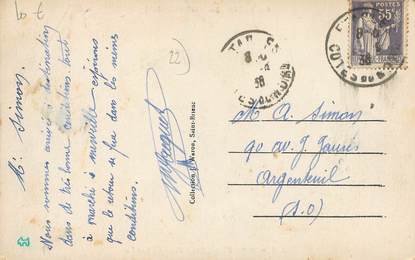 M. Simon.
Nous sommes arrivés à destination
dans de très bonne conditions tout
à marché à merveille espérons
que le retour se fera dans les mêmes
conditions.
22
Collection Waron, Saint-Brieuc
POSTES
55c
38
COTES DU NORD
38
M. A. Simon
90 av J. Jaurès
Argenteuil
(S.O)